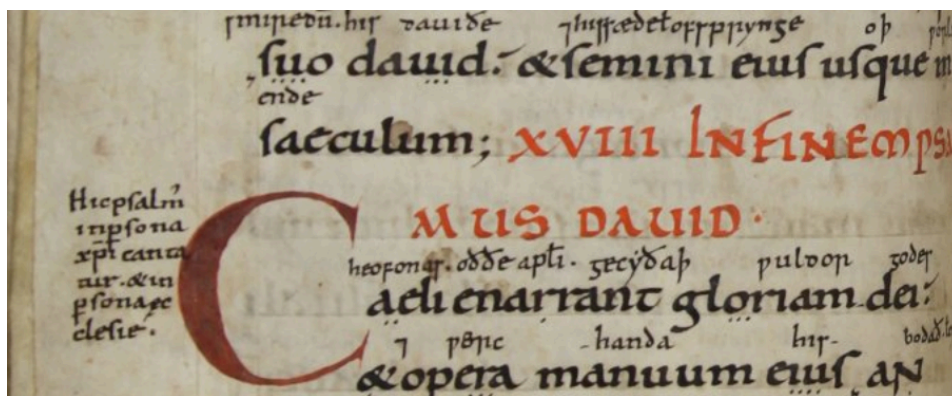 smiredū. his dauiðe ⁊ his sæde ł ofsprynge oþ
suo dauid. & semini eius usque in
ende
saeculum; XVIII IN FINEM PSA
MUS DAUID.
Hic psalm̄
in p̲sona
xp̄i canta
tur. & in
p̲sona ec
clesie.
heofonas. oððe apłi. gecyðaþ ƿuldor godes
Caeli enarrant gloriam dei.
⁊ ƿerc handa his
& opera manuum eius AN